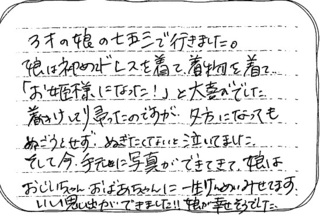 3才の娘の七五三で行きました。
娘は初めドレスを着て、着物を着て
「お姫様になった!」と大喜びでした
着物けっこう帰ったのですが、夕方になっても
ぬごうとせず、ぬぎたくないと泣いてました
そして今、手元に写真ができてきて、娘は
おじいちゃん おばあちゃんに一生けんめいみせてます
いい思い出ができました!!娘が幸せそうでした。